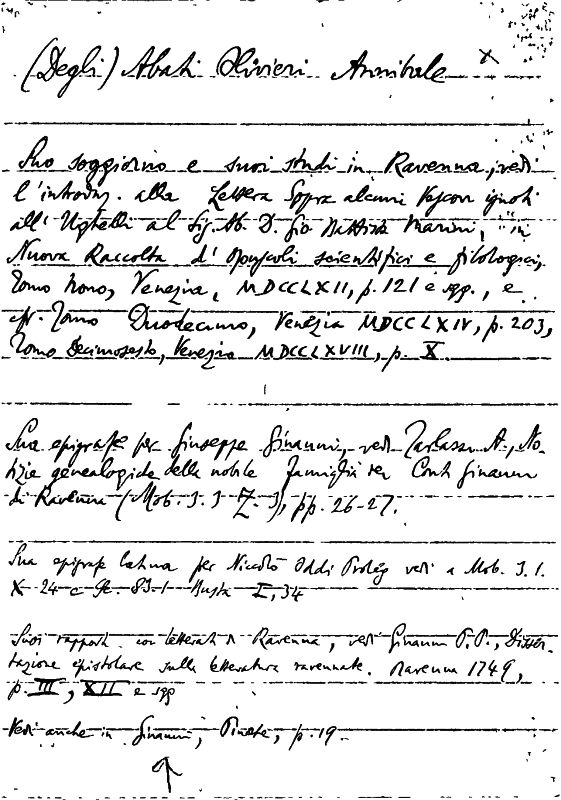 (Degli) Abati Olivieri Annibale x
Suo soggiorno e suoi studi in Ravenna, vedi
l'introduz. alla Lettera sopra alcuni Vescovi ignoti
all'Ughelli al Sig. Ab. D. Gio Battista Marini, "in
Nuova Raccolta d'Opuscoli scientifici e filologici,
Tomo Nono, Venezia, MDCCLXII, p. 121 e sgg., e
cfr. Tomo Duodecimo, Venezia MDCCLXIV, p. 203,
Tomo Decimosesto, Venezia MDCCLXVIII, p. X.
Sua epigrafe per Giuseppe Ginanni, vedi Tarlazzi A., No-
tizie genealogiche della nobile famiglia dei Conti Ginanni
di Ravenna (Mob. 3. 3 Z. 3), pp. 26-27.
Sua epigrafe latina per Niccolò Oddi Proleg vedi a Mob. 3. 1.
X 24 c 83.1 Busta I, 34
Suoi rapporti con letterati di Ravenna, vedi Ginanni P. P., Disser-
tazione epistolare sulla letteratura ravennate. Ravenna 1749,
p. III, XII e sgg
Vedi anche in Ginanni, Pinete, p. 19.